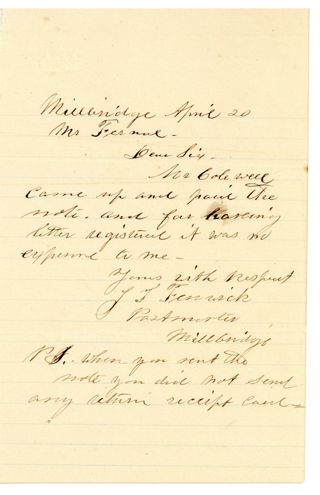 Millbridge April 20
Mr Fernal -
Dear Sir.
Mr Colewell
came up and paid the
note. and for having
letter registered it was no
expense to me -
Yours with Respect
J T Fenwick
Postmaster
Millbridge
P.S. when you sent the
note you did not send
any return receipt card -